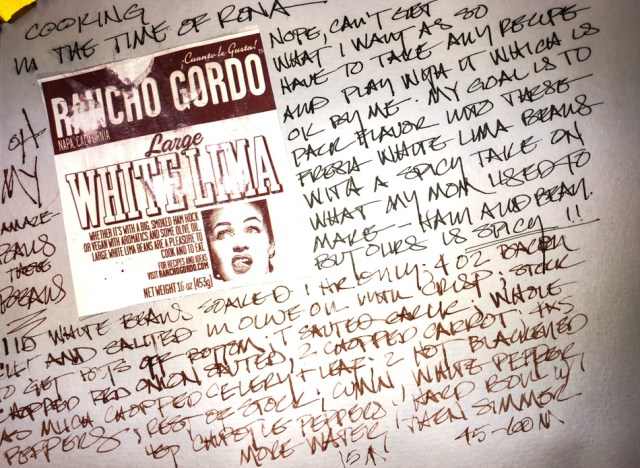 COOKING
IN THE TIME OF RONA
NOPE, CAN'T GET
WHAT I WANT AS SO
HAVE TO TAKE ANY RECIPE
AND PLAY WITH IT WHICH IS
OK BY ME. MY GOAL IS TO
PACK FLAVOR INTO THESE
FRESH WHITE LIMA BEANS
WITH A SPICY TAKE ON
WHAT MY MOM USED TO
MAKE - HAM AND BEAN.
BUT OURS IS SPICY !!
OH
MY
AMAZE-
BEANS
THESE
BEANS
¡Cuanto le Gusta!
RANCHO GORDO
NAPA, CALIFORNIA
Large
WHITE LIMA
WHETHER IT'S WITH A BIG, SMOKED HAM HOCK
OR VEGAN WITH AROMATICS AND SOME OLIVE OIL,
LARGE WHITE LIMA BEANS ARE A PLEASURE TO
COOK AND TO EAT.
FOR RECIPES AND IDEAS
VISIT RANCHOGORDO.COM
NET WEIGHT 16 oz (453g)
1 lb WHITE BEANS SOAKED 1 HR ONLY; 4 OZ BACON
AND SAUTED IN OLIVE OIL UNTIL CRISP; STOCK
GET BITS OFF BOTTOM; SAUTED GARLIC; WHOLE
CHOPPED RED ONION SAUTED; 2 CHOPPED CARROT;
AS MUCH CHOPPED CELERY; LEAF; 2 HOT BLACKENED
PEPPERS; REST OF STOCK; CUMIN; WHITE PEPPER
CHIPOTLE PEPPERS; HARD BOIL W/
MORE WATER; THEN SIMMER
15 M 45-60 M